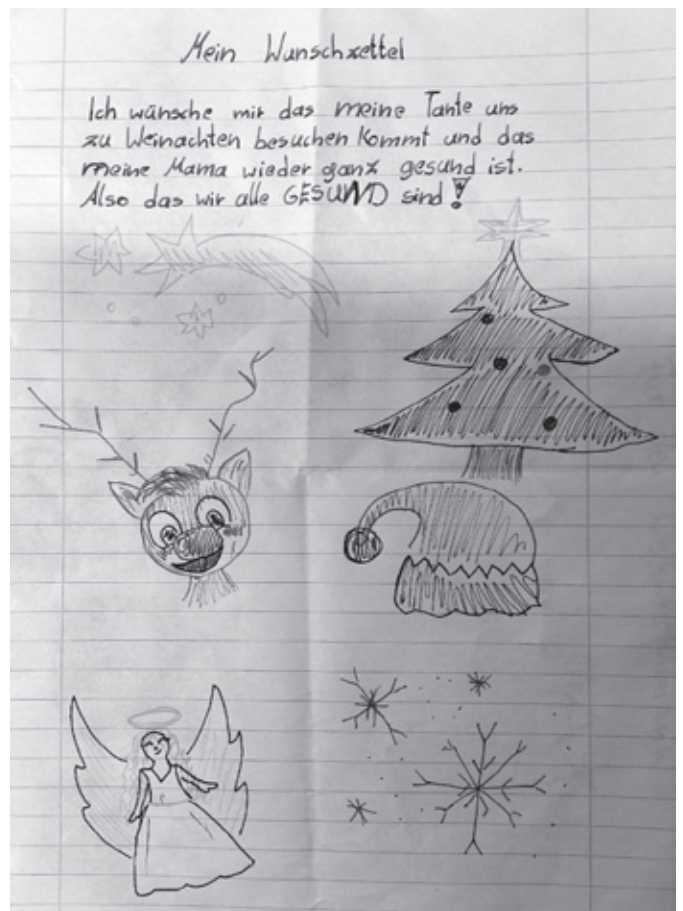 Mein Wunschzettel
Ich wünsche mir das meine Tante uns
zu Weinachten besuchen kommt und das
meine Mama wieder ganz gesund ist.
Also das wir alle GESUND sind!